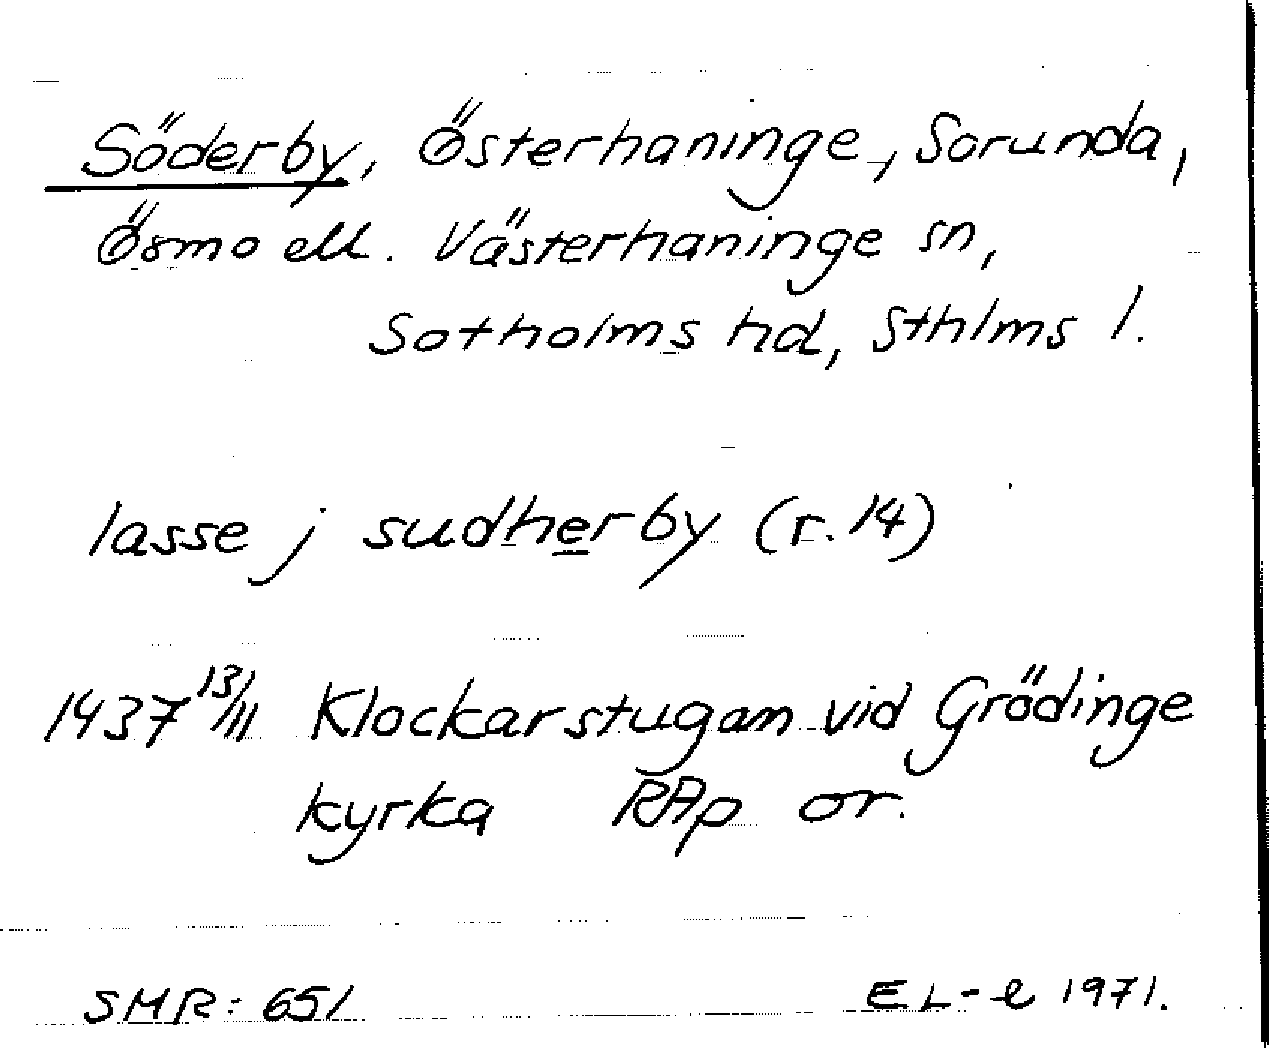 Söderby, Österhaninge, Sorunda,
Ösmo ell. Västerhaninge sn,
Sotholms hd, Sthlms l.
lasse j sudherby (r. 14)
1437 13/III Klockarstugan vid Grödinge
kyrka RAp or.
SMR: 651
EL-e 1971.